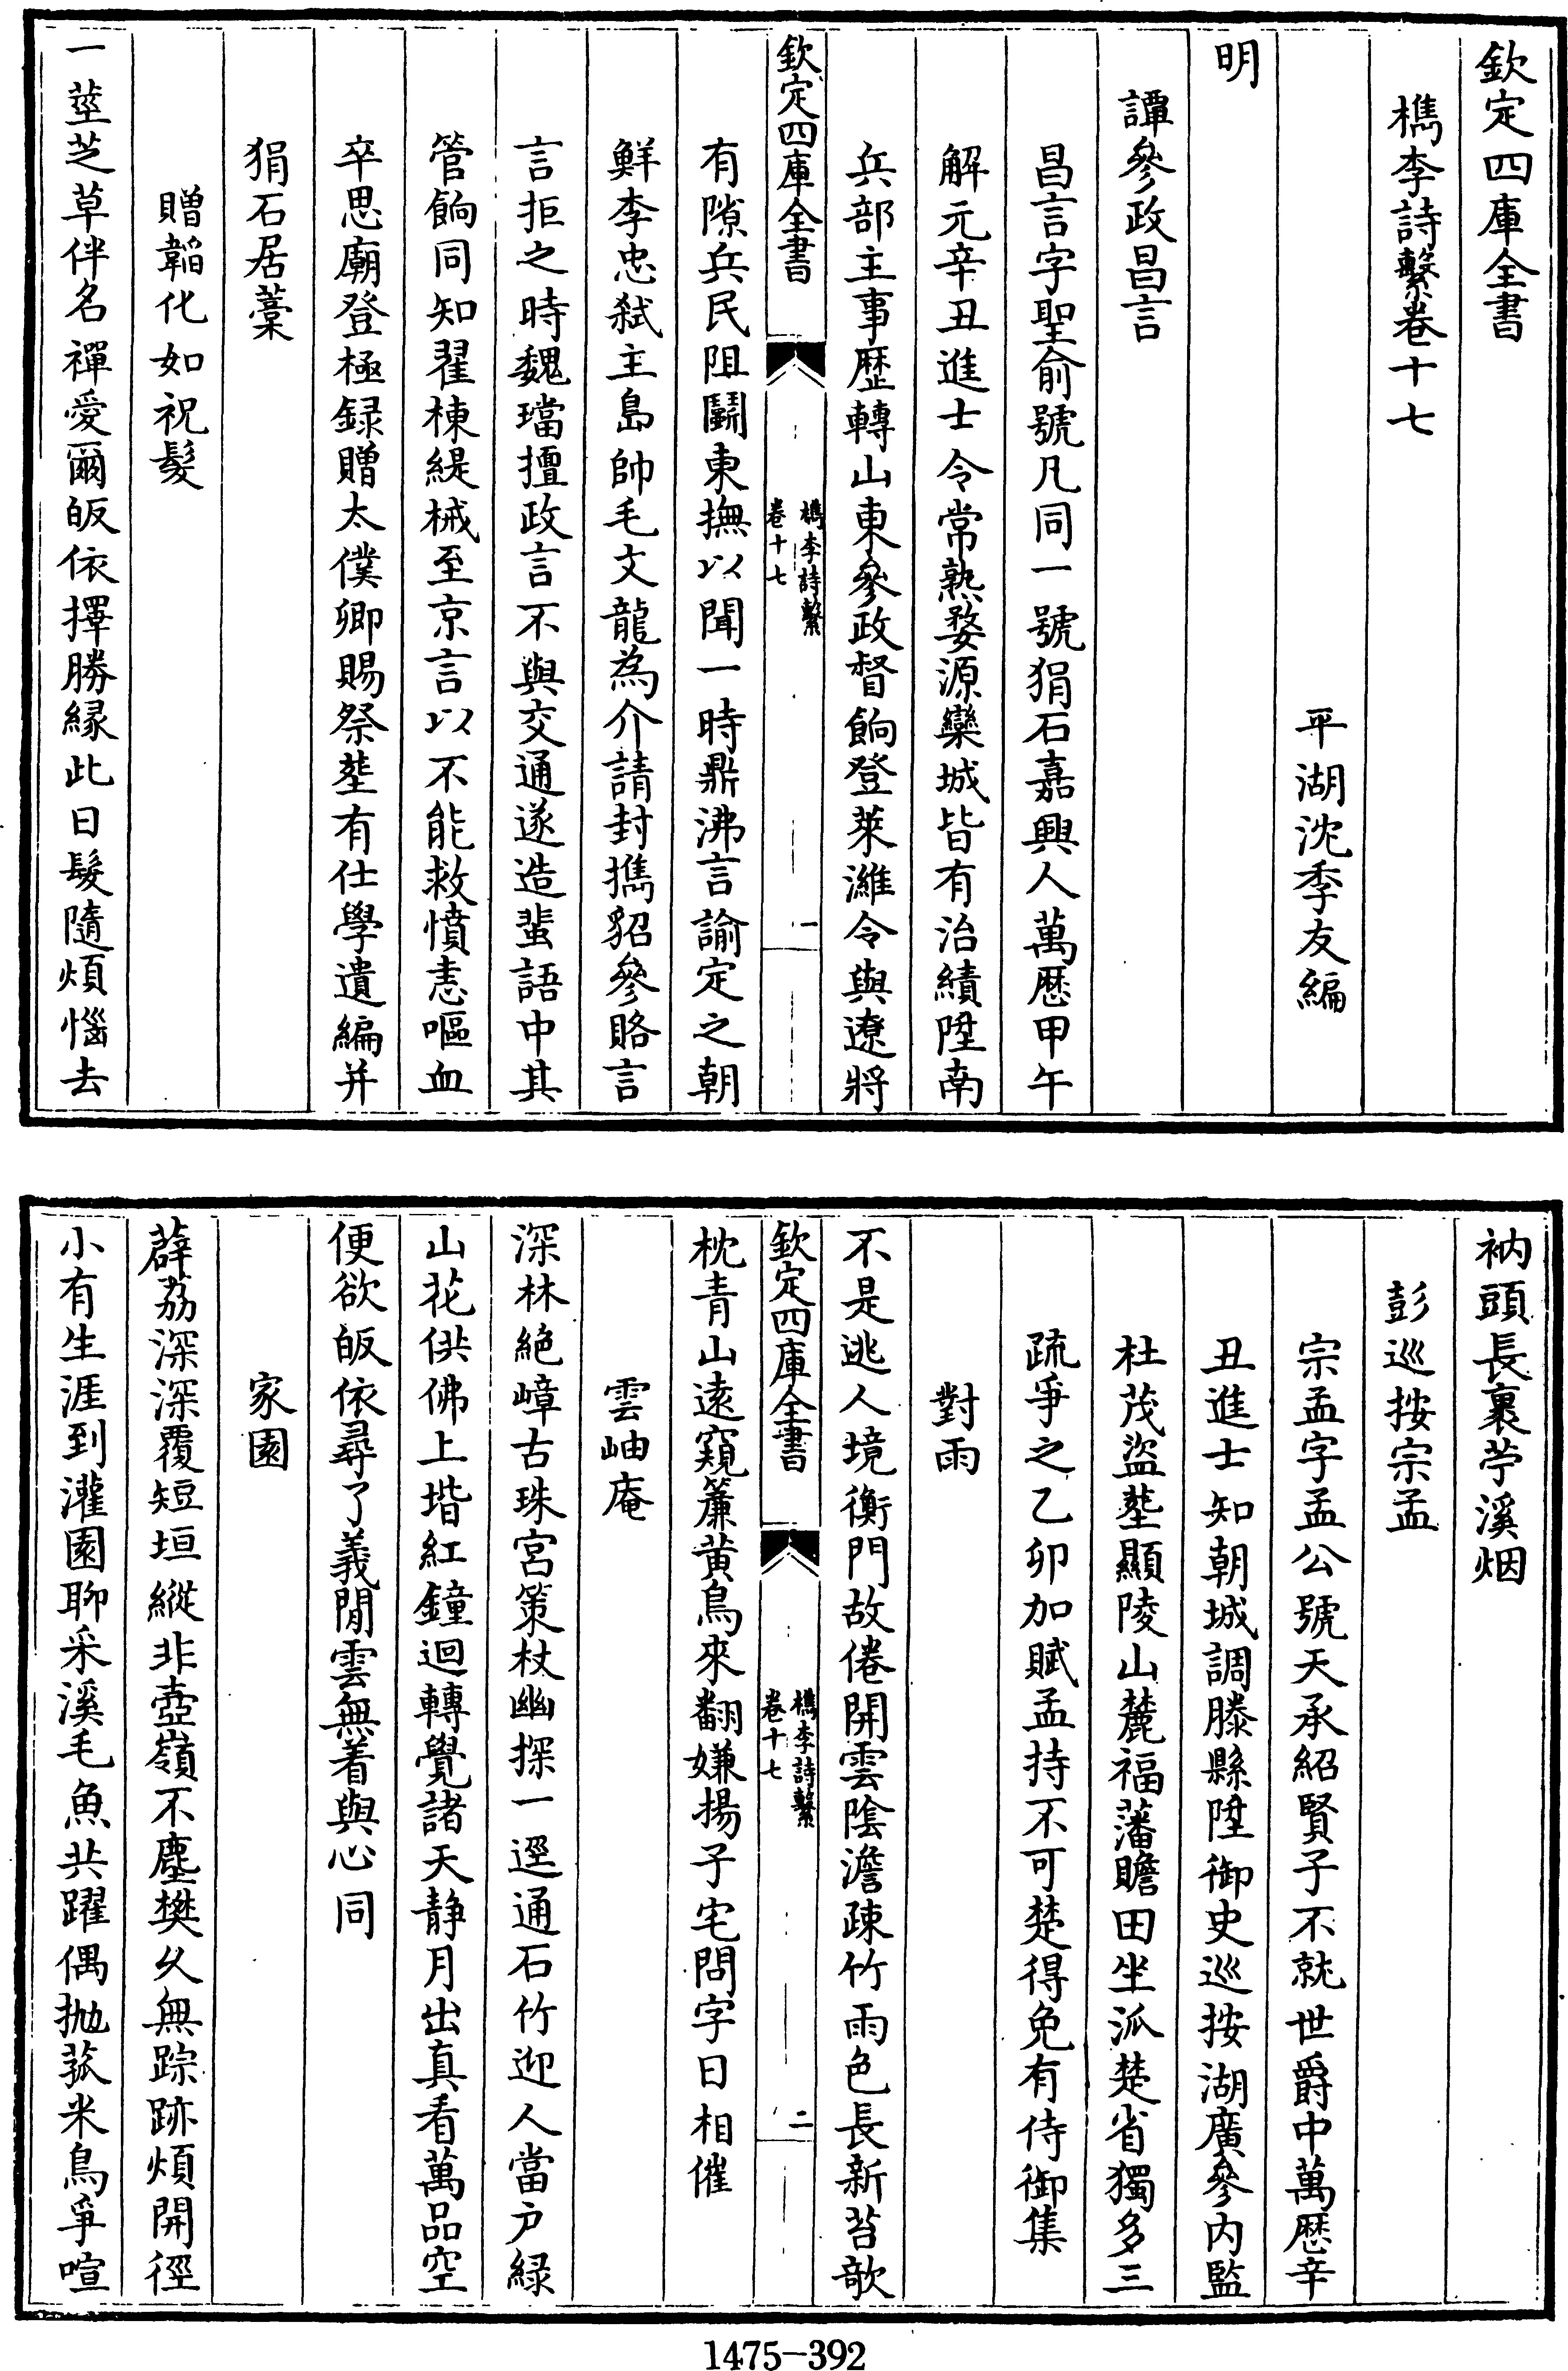 欽定四庫全書
檇李詩繫卷十七
平湖沈季友編
明
譚參政昌言
昌言字聖俞號凡同一號狷石嘉興人萬歴甲午
解元辛丑進士令常熟婺源欒城皆有治績陞南
兵部主事歴轉山東參政督餉登萊濰令與遼將
欽定四庫全書
檇李詩繫
卷十七
一
有隙兵民阻鬭東撫以聞一時鼎沸言諭定之朝
鮮李忠弑主島帥毛文龍為介請封擕貂參賂言
言拒之時魏璫擅政言不與交通遂造蜚語中其
管餉同知翟棟緹械至京言以不能救憤恚嘔血
卒思廟登極録贈太僕卿賜祭塟有仕學遺編并
狷石居藳
贈韜化如祝髮
一莖芝草伴名禪愛爾皈依擇勝緣此日髮隨煩惱去
衲頭長裏苧溪烟
彭巡按宗孟
宗孟字孟公號天承紹賢子不就世爵中萬歴辛
丑進士知朝城調滕縣陞御史巡按湖廣參内監
杜茂盜塟顯陵山麓福藩贍田坐泒楚省獨多三
疏爭之乙卯加賦孟持不可楚得免有侍御集
對雨
不是逃人境衡門故倦開雲陰澹疎竹雨色長新苔欹
欽定四庫全書
檇李詩繫
卷十七
二
枕青山遠窺簾黄鳥來翻嫌揚子宅問字日相催
雲岫庵
深林絶嶂古珠宮策杖幽探一逕通石竹迎人當户緑
山花供佛上堦紅鐘迴轉覺諸天静月出真看萬品空
便欲皈依尋了義閒雲無着與心同
家園
薜荔深深覆短垣縱非壺嶺不塵樊久無踪跡煩開徑
小有生涯到灌園聊采溪毛魚共躍偶抛菰米鳥爭喧
1475-392